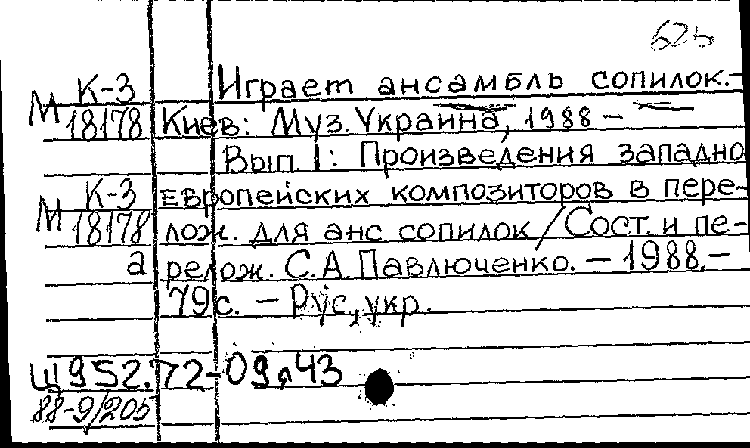 625
К-3 Играет ансамбль сопилок.-
М 18178 Киев: Муз. Украина, 1988 -
Вып 1: Произведения западно
К-3 европейских композиторов в пере-
М 18178 лож. для анс сопилок/Сост. и пе-
а релож. С.А Павлюченко. - 1988.-
79с. - Рус, укр.
Щ952.72-09я43
88-9/205